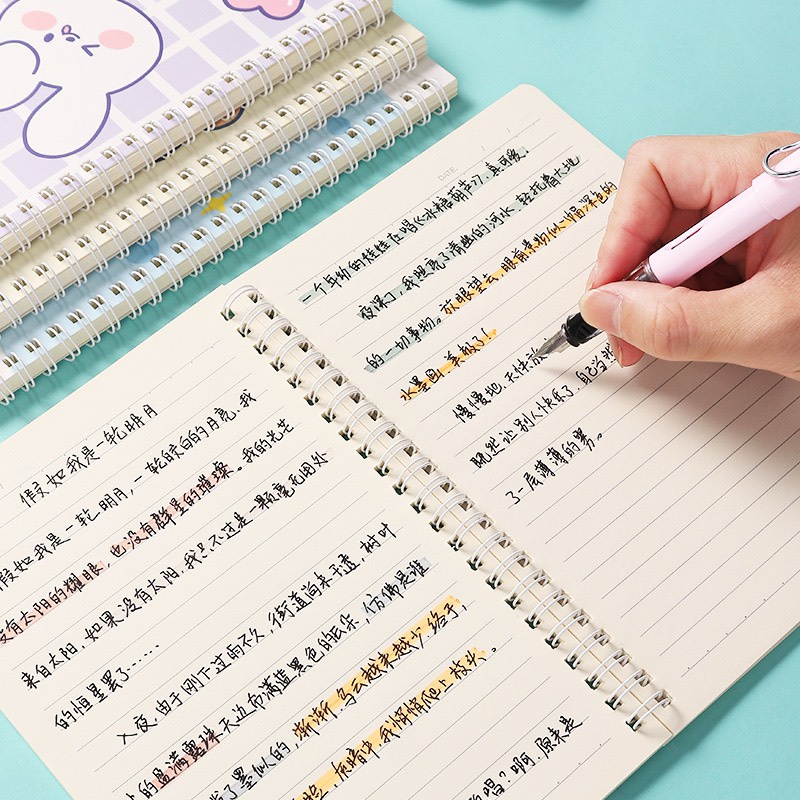 假如我是一轮明月
假如我是一轮明月,一轮皎白的月亮,我
没有太阳的耀眼,也没有群星的璀璨。我的光芒
来自太阳,如果没有太阳,我只不过是一颗毫无用处
的恒星罢了……
入夜,由于刚下过雨不久,街道尚未干透,树叶
的盈满露珠,天边布满蓝黑色的云朵,仿佛是谁
了墨似的,渐渐,乌云越来越少,终于,
脸,床暗中,我悄悄爬上枝头。
唱?啊,原来是
DATE
一个年幼的娃娃在唱《冰糖葫芦》,真可爱。
夜深了,我照亮了清幽的河水,轻抚着大地
的一切事物。放眼望去,眼前景物似一幅深色的
水墨画,美极了!
慢慢地,天快
既然让别人快乐了,自己当然
了一层薄薄的雾。